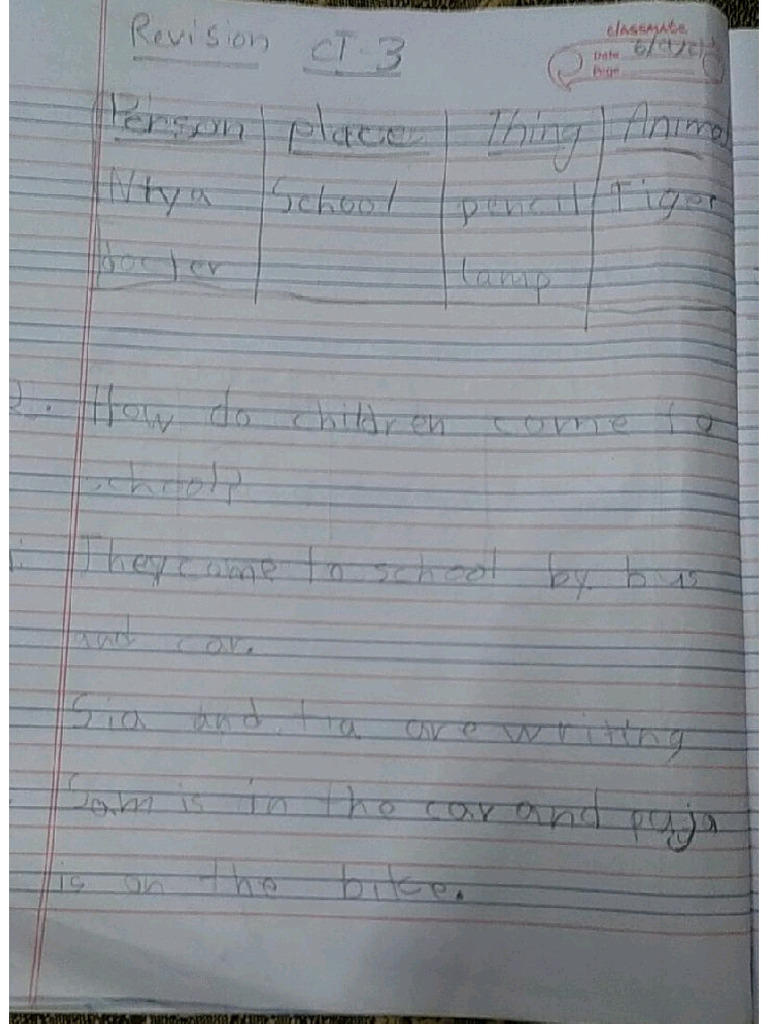 Revision CT-3
classmate
Date 6/9/21
Page
Person place Thing Animal
Ntya School pencil Tiger
docter lamp
2. How do children come to
school?
They come to school by bus
and car.
Sia and tia are writing
Sam is in the car and puja
is on the bike.